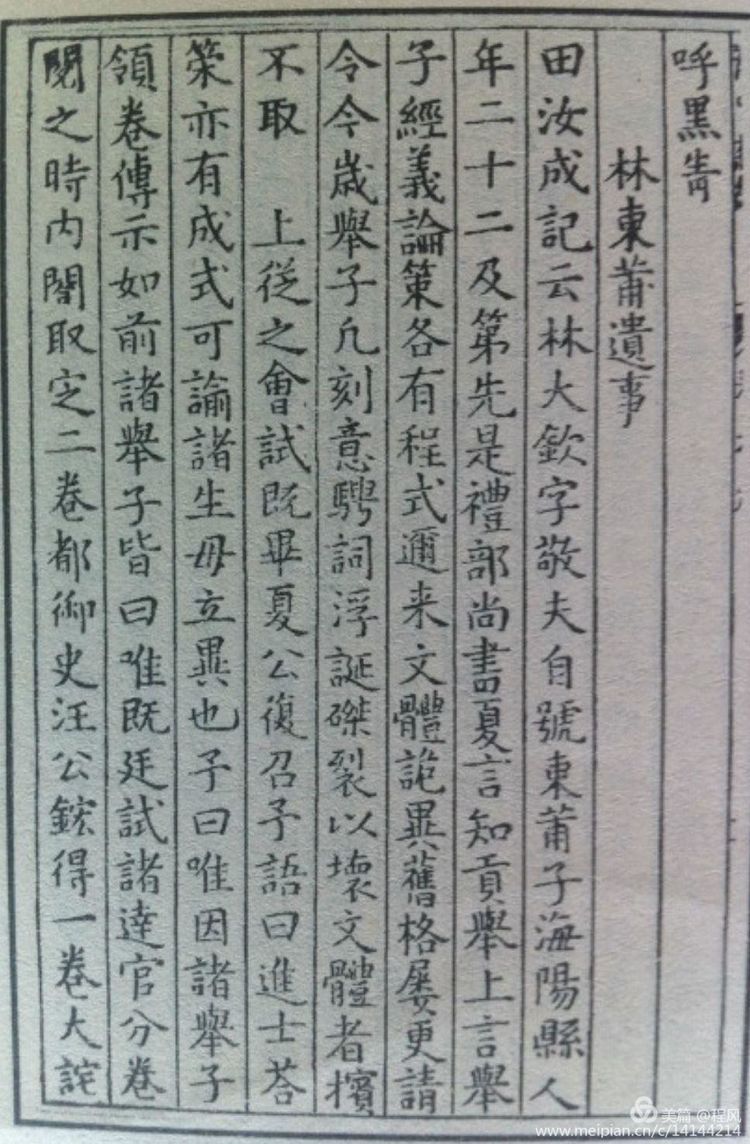 呼黑眚
林東莆遺事
田汝成記云林大欽字敬夫自號東莆子海陽縣人
年二十二及第先是禮部尚書夏言知貢舉上言舉
子經義論策各有程式邇来文體詭異舊格屡更請
令今歲舉子凡刻意騁詞浮誕磔裂以壊文體者擯
不取　上從之會試既畢夏公復召予語曰進士荅
策亦有成式可諭諸生毋立異也予曰唯因諸舉子
領卷傳示如前諸舉子皆曰唯既廷試諸達官分卷
閱之時内閣取定二卷都御史汪公鋐得一卷大詫
美篇 @程风
www.meipian.cn/c/14144214